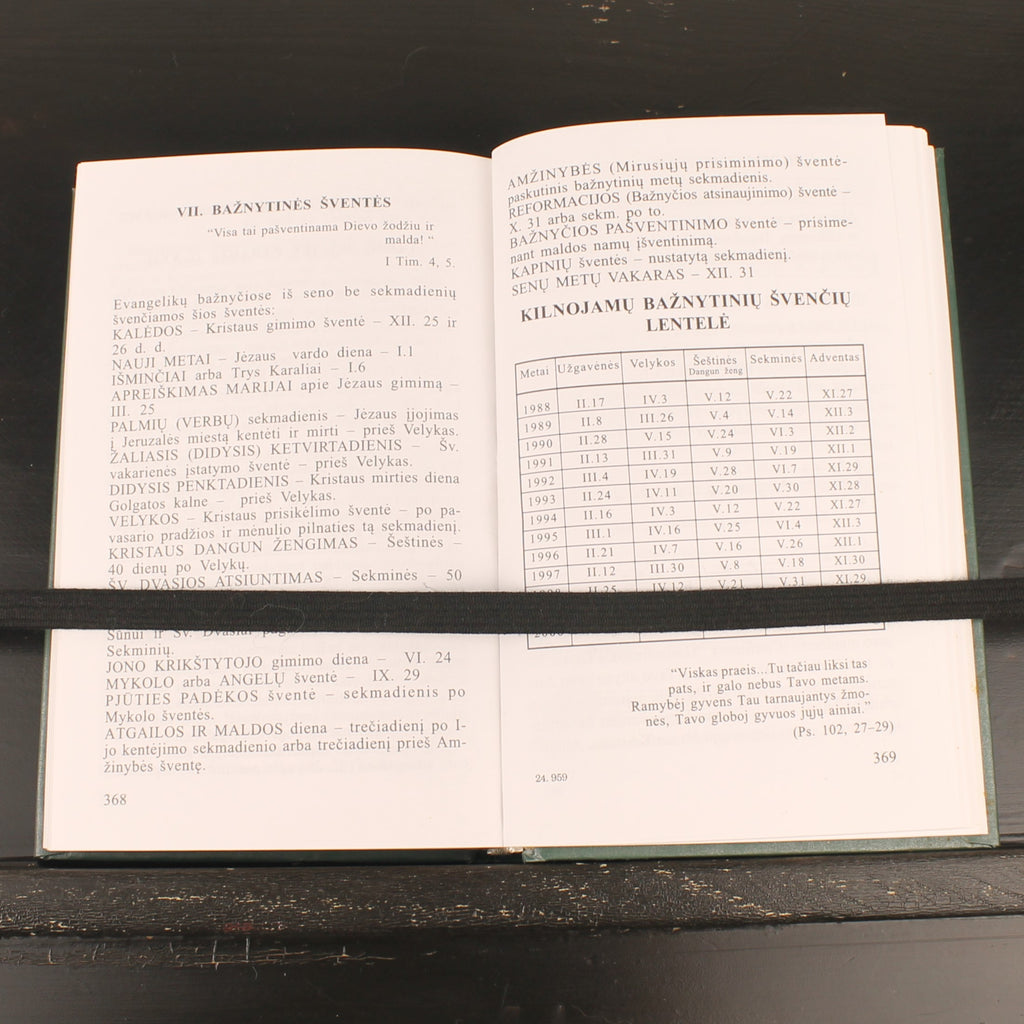 VII. BAŽNYTINĖS ŠVENTĖS
“Visa tai pašventinama Dievo žodžiu ir
malda! “
I Tim. 4, 5.
Evangelikų bažnyčiose iš seno be sekmadienių
švenčiamos šios šventės:
KALĖDOS – Kristaus gimimo šventė – XII. 25 ir
26 d. d.
NAUJI METAI – Jėzaus vardo diena – I.1
IŠMINČIAI arba Trys Karaliai – I.6
APREIŠKIMAS MARIJAI apie Jėzaus gimimą –
III. 25
PALMIŲ (VERBŲ) sekmadienis – Jėzaus įjojimas
į Jeruzalės miestą kentėti ir mirti – prieš Velykas.
ŽALIASIS (DIDYSIS) KETVIRTADIENIS – Šv.
vakarienės įstatymo šventė – prieš Velykas.
DIDYSIS PENKTADIENIS – Kristaus mirties diena
Golgatos kalne – prieš Velykas.
VELYKOS – Kristaus prisikėlimo šventė – po pa-
vasario pradžios ir mėnulio pilnaties tą sekmadienį.
KRISTAUS DANGUN ŽENGIMAS – Šeštinės –
40 dienų po Velykų.
ŠV. DVASIOS ATSIUNTIMAS – Sekminės – 50
Sūnui ir Šv. Dvasiai
Sekminių.
JONO KRIKŠTYTOJO gimimo diena – VI. 24
MYKOLO arba ANGELŲ šventė – IX. 29
PJŪTIES PADĖKOS šventė – sekmadienis po
Mykolo šventės.
ATGAILOS IR MALDOS diena – trečiadienį po I-
jo kentėjimo sekmadienio arba trečiadienį prieš Am-
žinybės šventę.
368
AMŽINYBĖS (Mirusiųjų prisiminimo) šventė-
paskutinis bažnytinių metų sekmadienis.
REFORMACIJOS (Bažnyčios atsinaujinimo) šventė –
X. 31 arba sekm. po to.
BAŽNYČIOS PAŠVENTINIMO šventė – prisime-
nant maldos namų įšventinimą.
KAPINIŲ šventės – nustatytą sekmadienį.
SENŲ METŲ VAKARAS – XII. 31
KILNOJAMŲ BAŽNYTINIŲ ŠVENČIŲ
LENTELĖ
Metai Užgavėnės Velykos Šeštinės Dangun ženg Sekminės Adventas
1988 II.17 IV.3 V.12 V.22 XI.27
1989 II.8 III.26 V.4 V.14 XII.3
1990 II.28 V.15 V.24 VI.3 XII.2
1991 II.13 III.31 V.9 V.19 XII.1
1992 III.4 IV.19 V.28 VI.7 XI.29
1993 II.24 IV.11 V.20 V.30 XI.28
1994 II.16 IV.3 V.12 V.22 XI.27
1995 III.1 IV.16 V.25 VI.4 XII.3
1996 II.21 IV.7 V.16 V.26 XII.1
1997 II.12 III.30 V.8 V.18 XI.30
II.25 IV.12 V.21 V.31 XI.29
“Viskas praeis...Tu tačiau liksi tas
pats, ir galo nebus Tavo metams.
Ramybėj gyvens Tau tarnaujantys žmo-
nės, Tavo globoj gyvuos jųjų ainiai.”
(Ps. 102, 27–29)
369
24. 959